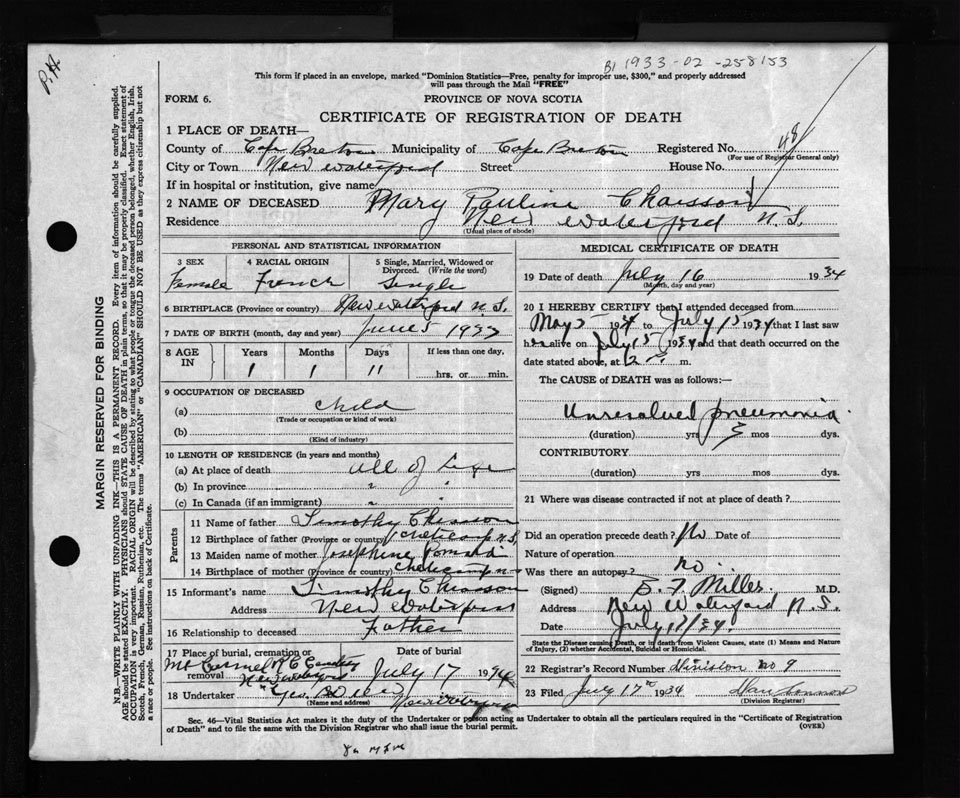 P.H.
B1 1933-02-258153
This form if placed in an envelope, marked "Dominion Statistics—Free, penalty for improper use, $300," and properly addressed
will pass through the Mail "FREE"
FORM 6.
PROVINCE OF NOVA SCOTIA
CERTIFICATE OF REGISTRATION OF DEATH
1 PLACE OF DEATH—
County of Cape Breton Municipality of Cape Breton Registered No. 48
(For use of Registrar General only)
City or Town New Waterford Street House No.
If in hospital or institution, give name
2 NAME OF DECEASED Mary Pauline Chaisson
Residence New Waterford N.S.
(Usual place of abode)
PERSONAL AND STATISTICAL INFORMATION
3 SEX 4 RACIAL ORIGIN 5 Single, Married, Widowed or
Divorced. (Write the word)
Female French Single
6 BIRTHPLACE (Province or country) New Waterford N.S.
7 DATE OF BIRTH (month, day and year) June 5 1933
8 AGE IN Years Months Days If less than one day,
1 1 11 hrs. or min.
9 OCCUPATION OF DECEASED
(a) Child
(Trade or occupation or kind of work)
(b)
(Kind of industry)
10 LENGTH OF RESIDENCE (in years and months)
(a) At place of death all of Life
(b) In province " "
(c) In Canada (if an immigrant) " "
Parents
11 Name of father Timothy Chiasson
12 Birthplace of father (Province or country) Cheticamp N.S.
13 Maiden name of mother Josephine
14 Birthplace of mother (Province or country) Cheticamp N.S.
15 Informant's name Timothy Chiasson
Address New Waterford
16 Relationship to deceased Father
17 Place of burial, cremation or removal Date of burial
Mt Carmel R C Cemetery
New Waterford July 17 1934
18 Undertaker Geo
(Name and address) New Waterford
MEDICAL CERTIFICATE OF DEATH
19 Date of death July 16 1934
(Month, day and year)
20 I HEREBY CERTIFY that I attended deceased from
May 5 1934 to July 15 1934 that I last saw
her alive on July 15 1934 and that death occurred on the
date stated above, at m.
The CAUSE of DEATH was as follows:—
Unresolved pneumonia
(duration) yrs 3 mos dys.
CONTRIBUTORY
(duration) yrs. mos. dys.
21 Where was disease contracted if not at place of death?
Did an operation precede death? No Date of
Nature of operation
Was there an autopsy? no
(Signed) E. F. Miller M.D.
Address New Waterford N.S.
Date July 17/34.
State the Disease causing Death, or in death from Violent Causes, state (1) Means and Nature
of Injury, (2) whether Accidental, Suicidal or Homicidal.
22 Registrar's Record Number Division no 9
23 Filed July 17th 1934 Dan Connors
(Division Registrar)
Sec. 46—Vital Statistics Act makes it the duty of the Undertaker or person acting as Undertaker to obtain all the particulars required in the "Certificate of Registration
of Death" and to file the same with the Division Registrar who shall issue the burial permit.
(OVER)
MARGIN RESERVED FOR BINDING
N.B.—WRITE PLAINLY WITH UNFADING INK—THIS IS A PERMANENT RECORD. Every item of information should be carefully supplied.
AGE should be stated EXACTLY. PHYSICIANS should STATE CAUSE OF DEATH in plain terms, so that it may be properly classified. Exact statement of
OCCUPATION is very important. RACIAL ORIGIN will be described by stating to what people or tongue the deceased person belonged, whether English, Irish,
Scotch, French, German, Russian, Ruthenian, etc. The terms "AMERICAN" or "CANADIAN" SHOULD NOT BE USED as they express citizenship but not
a race or people. See instructions on back of Certificate.